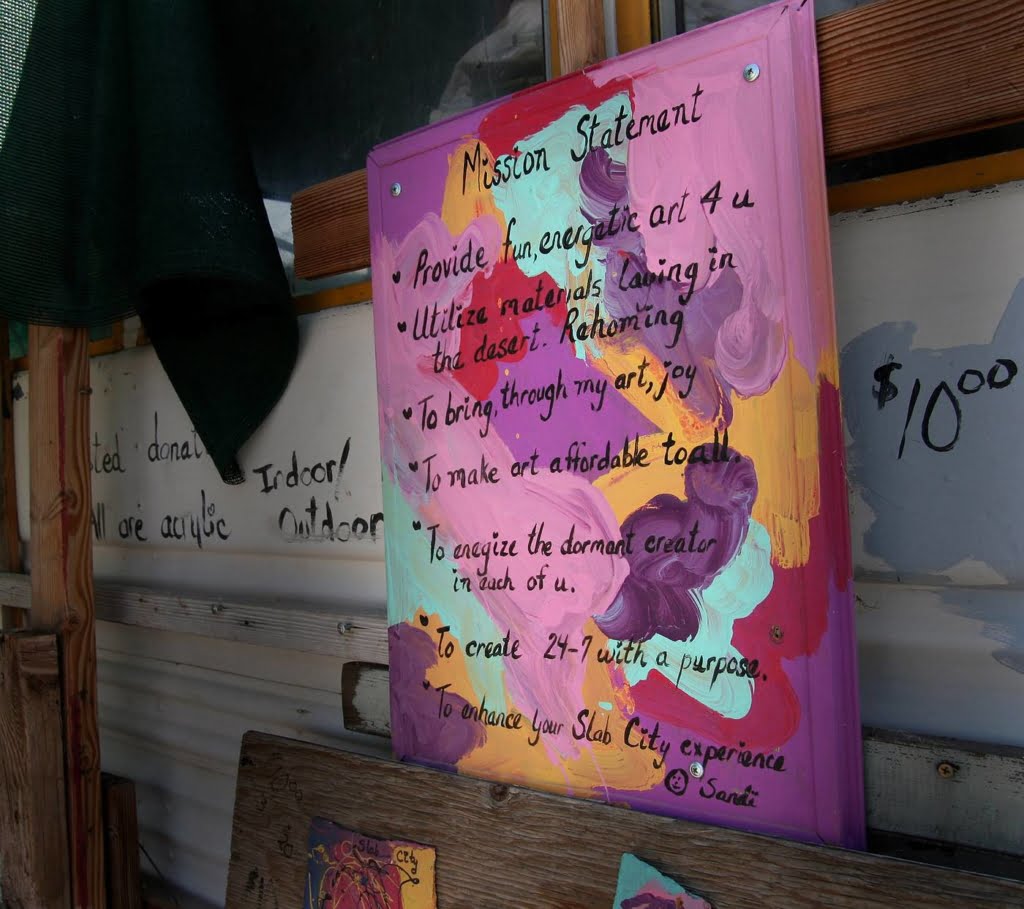 Mission Statement
• Provide fun, energetic art 4 u
• Utilize materials laying in
the desert. Rehoming
• To bring, through my art, joy
• To make art affordable to all.
• To enegize the dormant creator
in each of u.
• To create 24-7 with a purpose.
• To enhance your Slab City experience
Sandi
$10⁰⁰
Indoor/
Outdoor
All are acrylic
Slab City